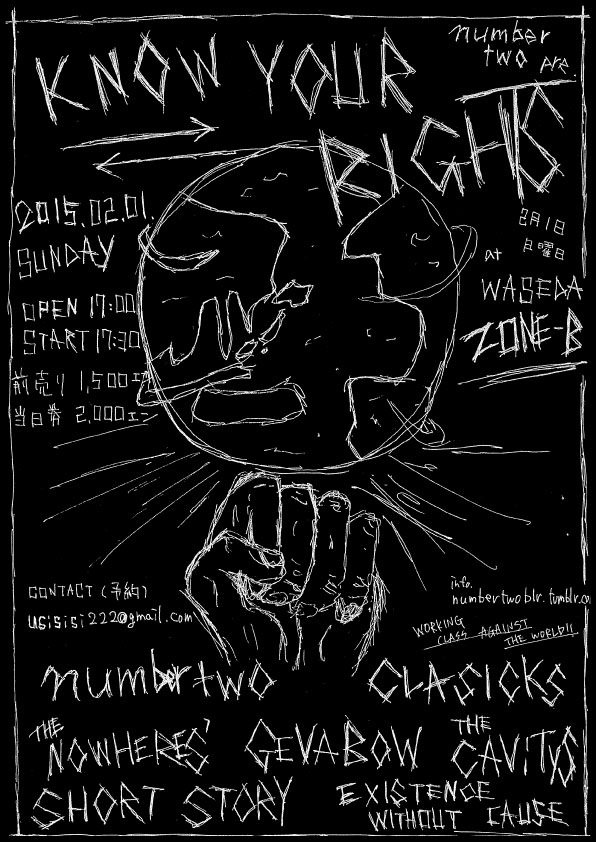 number
two pre.
KNOW YOUR
RIGHTS
2015.02.01.
SUNDAY
OPEN 17:00
START 17:30
前売り 1,500エン
当日券 2,000エン
2月1日
日曜日
at
WASEDA
ZONE-B
CONTACT (予約)
usisisi222@gmail.com
info.
numbertwoblr.tumblr.co
WORKING
CLASS AGAINST
THE WORLD!!
number two
CLASICKS
THE NOWHERES'
GEVABOW
THE CAVITYS
SHORT STORY
EXISTENCE
WITHOUT CAUSE